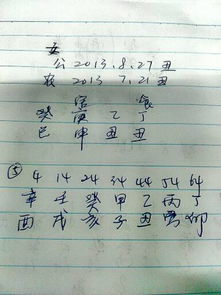 女
公 2013.8.27 丑
农 2013 7.21 丑
官 食
癸 庚 乙 丁
巳 申 丑 丑
⑤ 4 14 24 34 44 54 64
辛 壬 癸 甲 乙 丙 丁
酉 戌 亥 子 丑 寅 卯